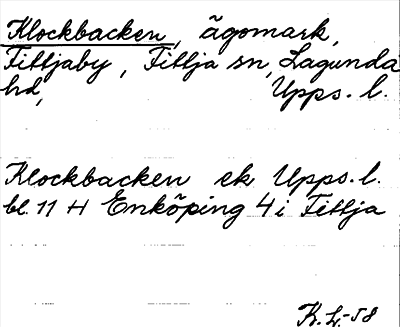 Klockbacken, ägomark,
Fittjaby, Fittja sn, Lagunda
hd, Upps. l.
Klockbacken ek Upps. l.
bl. 11 H Enköping 4 i Fittja
K.L.-58